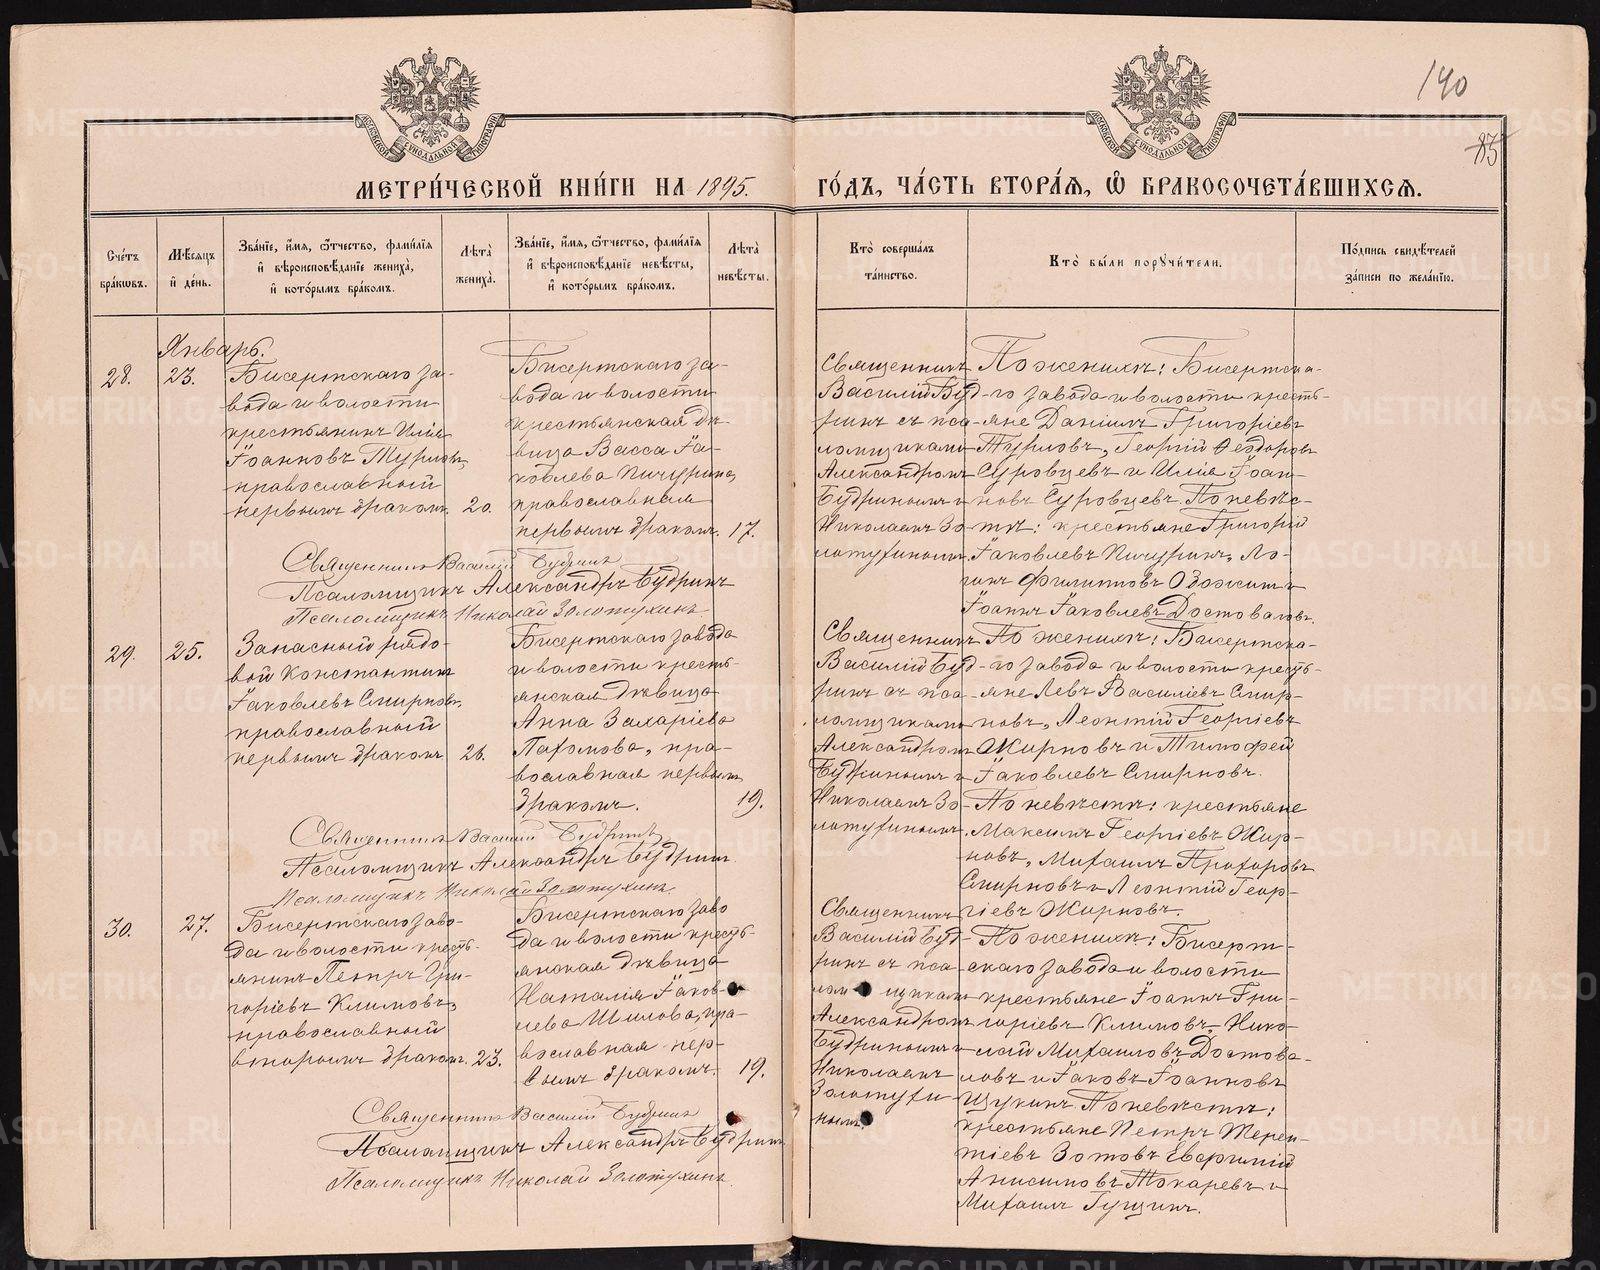 140
85
МЕТРИ́ЧЕСКОЙ КНИ́ГИ НА 1895.
ГО́ДЪ, ЧА́СТЬ ВТОРА́Я, Ѽ БРАКОСОЧЕТА́ВШИХСЯ.
Сче́тъ бра́кѡвъ.
Мѣ́сяцъ и҆ де́нь.
Зва́нїе, и҆́мя, ѻ҆́тчество, фами́лїя и҆ вѣроисповѣ́данїе жениха̀, и҆ кото́рымъ бра́комъ.
Лѣ́та жениха̀.
Зва́нїе, и҆́мя, ѻ҆́тчество, фами́лїя и҆ вѣроисповѣ́данїе невѣ́сты, и҆ кото́рымъ бра́комъ.
Лѣта̀ невѣ́сты.
Кто̀ соверша́лъ та́инство.
Кто̀ бы́ли порꙋчи́тели.
По́дпись свидѣ́телей за́писи по жела́нїю.
Январь.
28.
23.
Бисертскаго за-
вода и волости
крестьянинъ Илія
Іоанновъ Турловъ,
православный
первымъ бракомъ.
20.
Бисертскаго за-
вода и волости
крестьянская дѣ-
вица Васса Іа-
ковлева Пичурина,
православная
первымъ бракомъ.
17.
Священникъ
Василій Буд-
ринъ съ пса-
ломщиками
Александромъ
Будринымъ и
Николаемъ Зо-
лотухинымъ
По женихѣ: Бисертска-
го завода и волости кресть-
яне Даніилъ Григоріевъ
Турловъ, Георгій Ѳеодоровъ
Суровцевъ и Илія Іоан-
новъ Суровцевъ. По невѣс-
тѣ: крестьяне Григорій
Іаковлевъ Пичуринъ, Ло-
гинъ Филипповъ Обожинъ и
Іоаннъ Іаковлевъ Достоваловъ.
Священникъ Василій Будринъ
Псаломщикъ Александръ Будринъ
Псаломщикъ Николай Золотухинъ
29.
25.
Запасный рядо-
вой Константинъ
Іаковлевъ Смирновъ,
православный
первымъ бракомъ
26.
Бисертскаго завода
и волости кресть-
янская дѣвица
Анна Захаріева
Пахомова, пра-
вославная первымъ
бракомъ.
19.
Священникъ
Василій Буд-
ринъ съ пса-
ломщиками
Александромъ
Будринымъ и
Николаемъ Зо-
лотухинымъ.
По женихѣ: Бисертска-
го завода и волости кресть-
яне Левъ Василіевъ Смир-
новъ, Леонтій Георгіевъ
Жирновъ и Тимофей
Іаковлевъ Смирновъ.
По невѣстѣ: крестьяне
Максимъ Георгіевъ Жир-
новъ, Михаилъ Прохоровъ
Смирновъ и Леонтій Геор-
гіевъ Жирновъ.
Священникъ Василій Будринъ
Псаломщикъ Александръ Будринъ
Псаломщикъ Николай Золотухинъ.
30.
27.
Бисертскаго заво-
да и волости кресть-
янинъ Петръ Гри-
горіевъ Климовъ,
православный
вторымъ бракомъ.
23.
Бисертскаго заво
да и волости кресть-
янская дѣвица
Наталія Іаков-
лева Шилова, пра-
вославная пер-
вымъ бракомъ.
19.
Священникъ
Василій Буд-
ринъ съ пса-
ломщиками
Александромъ
Будринымъ и
Николаемъ
Золотухи
нымъ
По женихѣ: Бисерт-
скаго завода и волости
крестьяне Іоаннъ Гри-
горіевъ Климовъ, Нико-
лай Михаиловъ Достова-
ловъ и Іаковъ Іоанновъ
Щукинъ По невѣстѣ:
крестьяне Петръ Терен-
тіевъ Зотовъ Евфимій
Анисимовъ Токаревъ и
Михаилъ Гущинъ.
Священникъ Василій Будринъ
Псаломщикъ Александръ Будринъ
Псаломщикъ Николай Золотухинъ.
METRIKI.GASO-URAL.RU